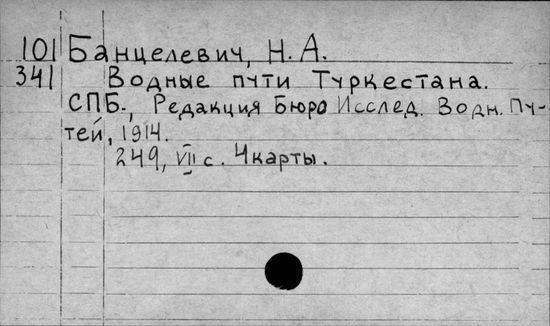 101 Банцелевич, Н. А.
341 Водные пути Туркестана.
СПБ., Редакция Бюро Исслед. Водн. Пу-
тей, 1914.
249, VII с. 4 карты.